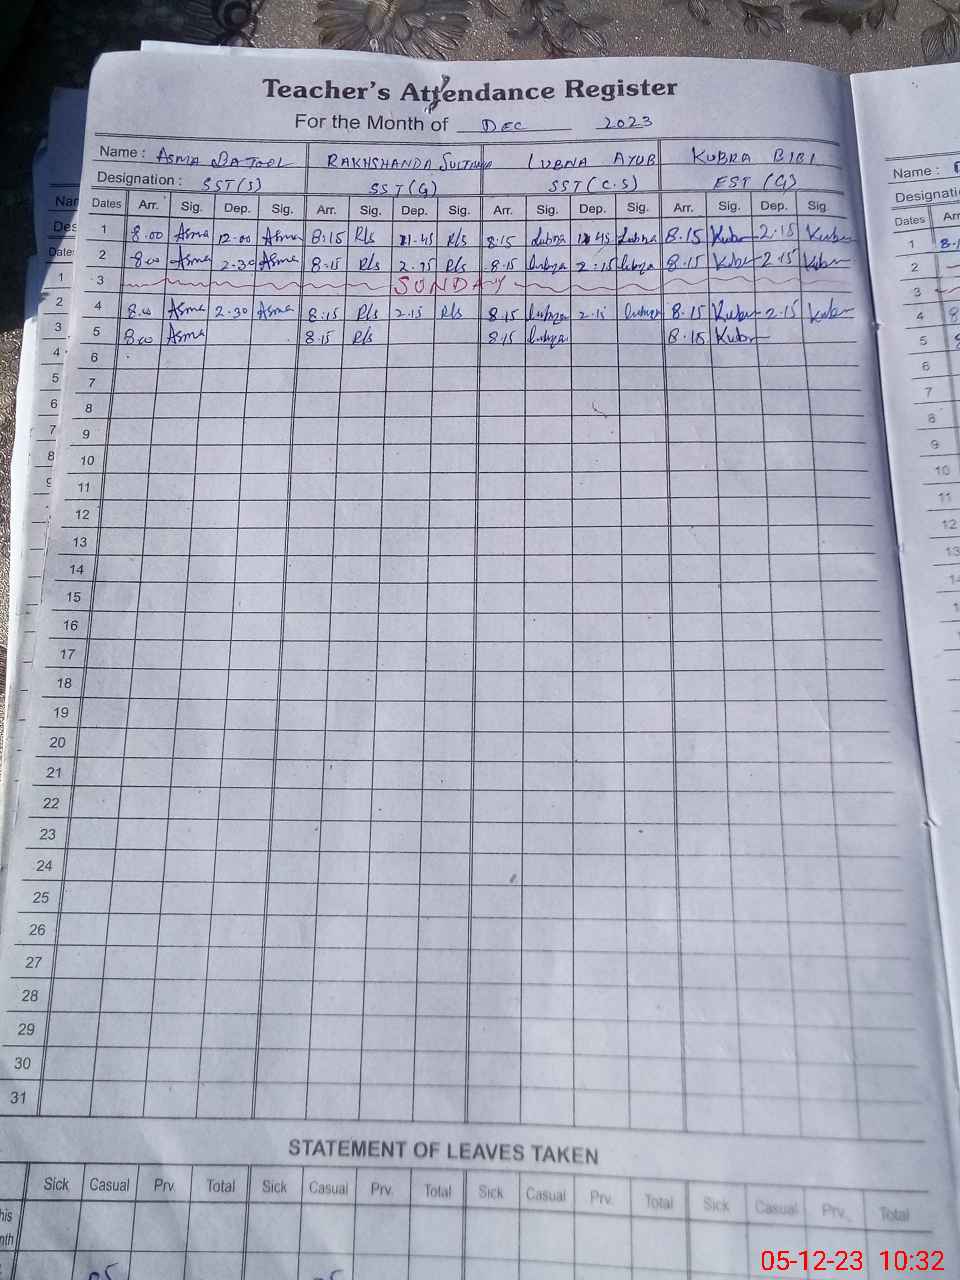 Teacher's Attendance Register
For the Month of DEC 2023
Name : ASMA BATOOL RAKHSHANDA SULTANA LUBNA AYUB KUBRA BIBI
Designation : SST(S) SST(G) SST(C.S) EST (G)
Dates Arr. Sig. Dep. Sig. Arr. Sig. Dep. Sig. Arr. Sig. Dep. Sig. Arr. Sig. Dep. Sig.
1 8.00 Asma 12.00 Asma 8:15 R/s 11.45 R/s 8.15 Lubna 12.45 Lubna 8.15 Kubra 2.15 Kubra
2 8.00 Asma 2.30 Asma 8.15 R/s 2.15 R/s 8.15 Lubna 2.15 Lubna 8.15 Kubra 2.15 Kubra
3 SUNDAY
4 8.00 Asma 2.30 Asma 8:15 R/s 2.15 R/s 8.15 Lubna 2.15 Lubna 8.15 Kubra 2.15 Kubra
5 8.00 Asma 8.15 R/s 8.15 Lubna 8.15 Kubra
6
7
8
9
10
11
12
13
14
15
16
17
18
19
20
21
22
23
24
25
26
27
28
29
30
31
STATEMENT OF LEAVES TAKEN
Sick Casual Prv. Total Sick Casual Prv. Total Sick Casual Prv. Total Sick Casual Prv. Total
Name :
Designati
Dates Arr
1
2
3
4
5
6
7
8
9
10
11
12
13
05-12-23 10:32